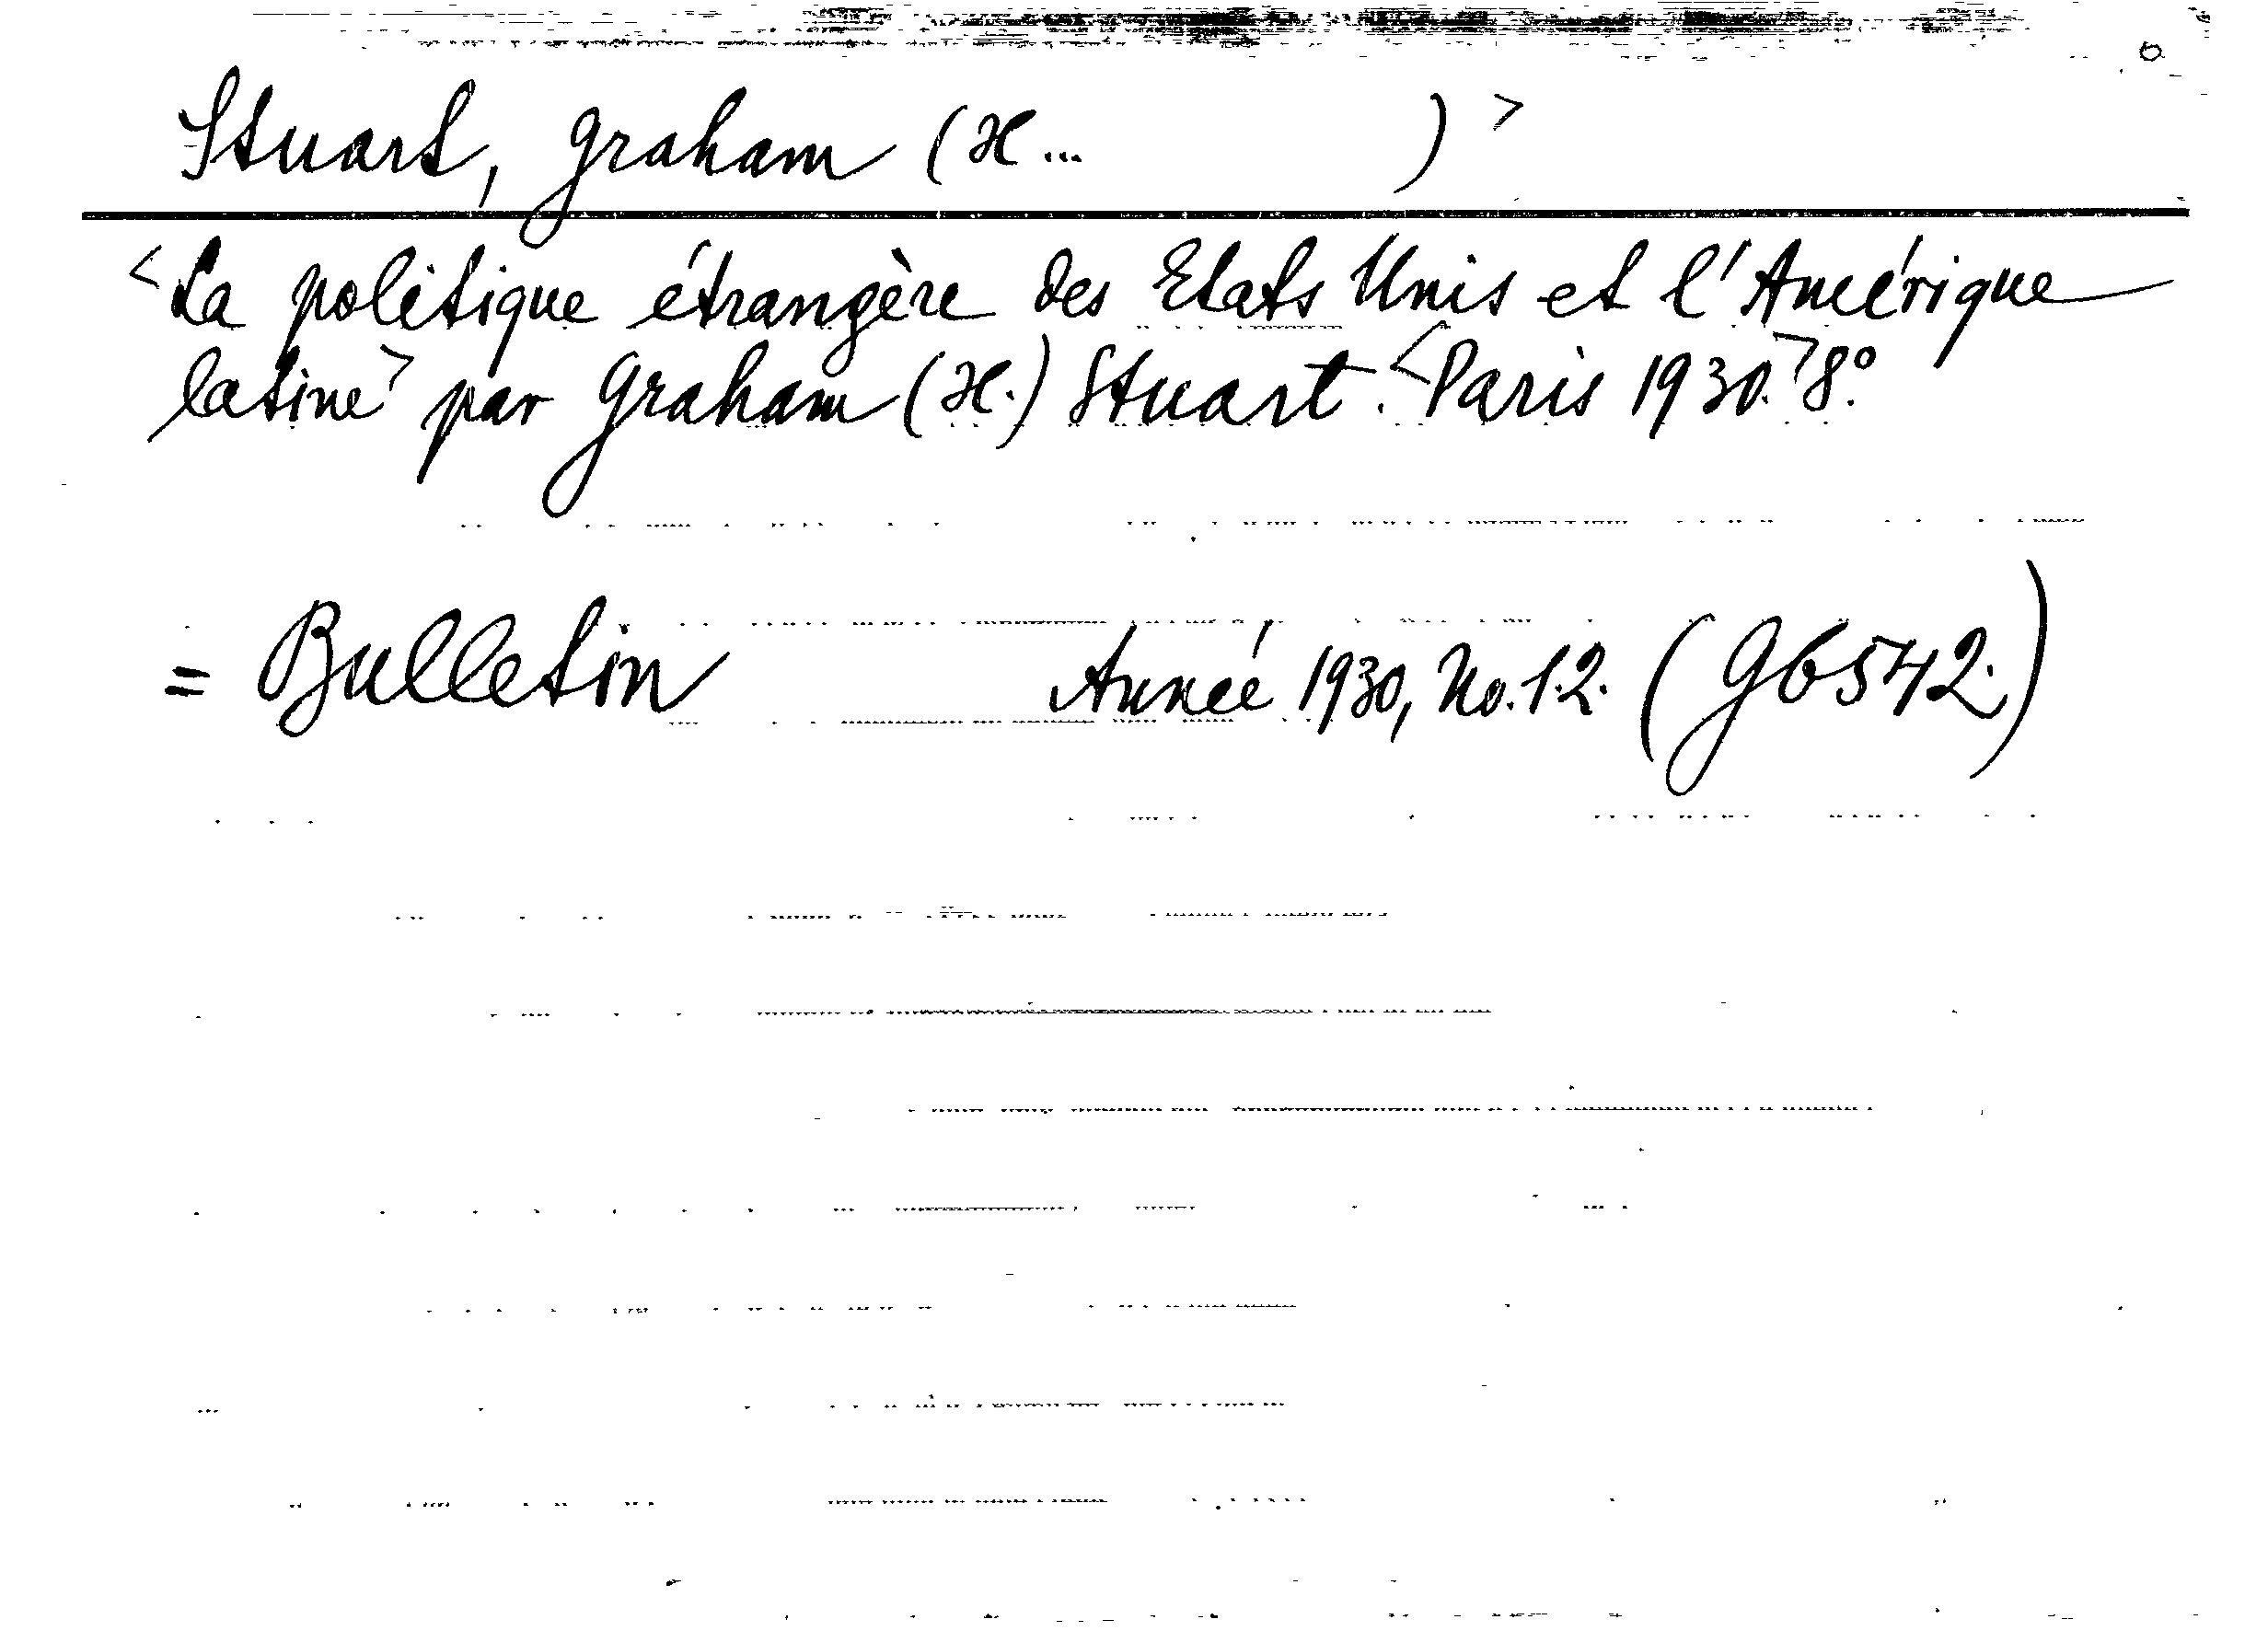 Stuart, Graham (H... ) >
<La politique étrangère des Etats Unis et l'Amérique
latine> par Graham (H.) Stuart. <Paris 1930.> 8°.
= Bulletin Année 1930, No. 1.2. (G6542.)